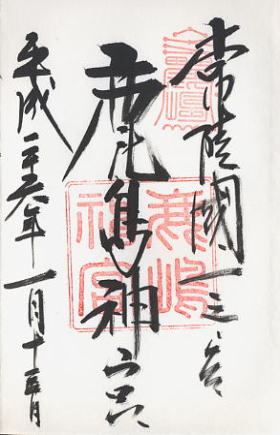 常陸國一之宮
鹿島神宮
平成二十六年一月十
鹿嶋神宮